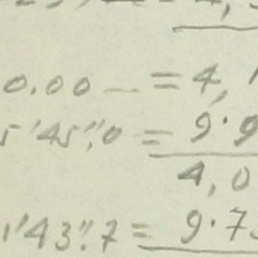 0.00 = 4,
5'45".0 = 9.9
4,0
1'43".7 = 9.7